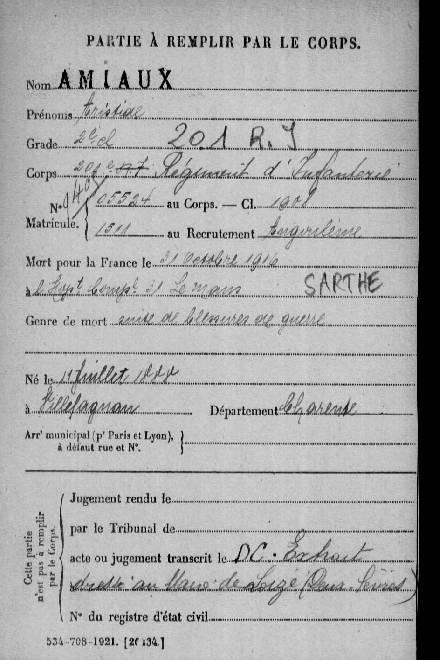 PARTIE À REMPLIR PAR LE CORPS.
Nom AMIAUX
Prénoms Aristide
Grade 2e cl 201 R. I
Corps 201e Régiment d'Infanterie
N° 05524 au Corps. — Cl. 1908
Matricule. 1511 au Recrutement Angoulême
Mort pour la France le 31 Octobre 1916
à l'Hopt Compl. 31 Le Mans SARTHE
Genre de mort suite de blessures de guerre
Né le Juillet 1888
à Villefagnan Département Charente
Arrt municipal (pr Paris et Lyon),
à défaut rue et N°.
Cette partie
n'est pas à remplir
par le Corps.
Jugement rendu le
par le Tribunal de
acte ou jugement transcrit le DC. Extrait
au Maire de Loizé (Deux-Sèvres)
N° du registre d'état civil
534-708-1921. [26434.]